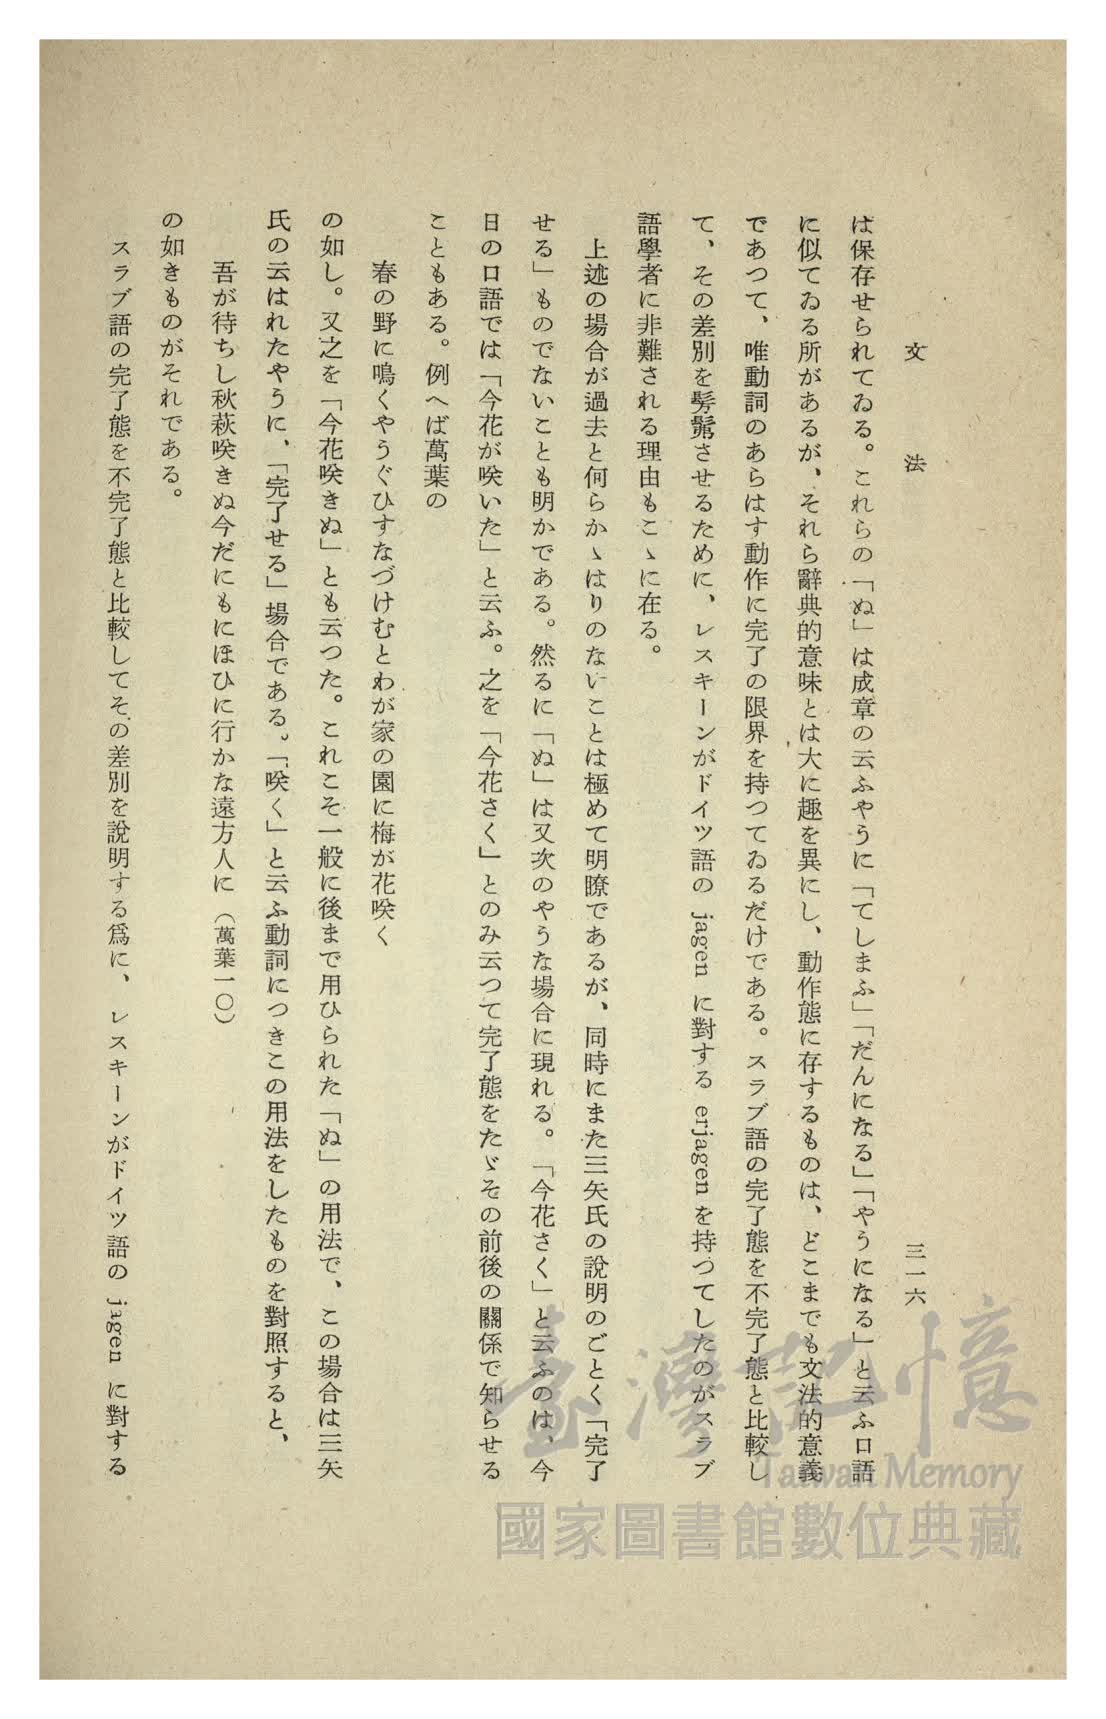 文法
三一六
は保存せられてゐる。これらの「ぬ」は成章の云ふやうに「てしまふ」「だんになる」「やうになる」と云ふ口語
に似てゐる所があるが、それら辭典的意味とは大に趣を異にし、動作態に存するものは、どこまでも文法的意義
であつて、唯動詞のあらはす動作に完了の限界を持つてゐるだけである。スラブ語の完了態を不完了態と比較し
て、その差別を髣髴させるために、レスキーンがドイツ語の jagen に對する erjagen を持つてしたのがスラブ
語學者に非難される理由もこゝに在る。
上述の場合が過去と何らかゝはりのないことは極めて明瞭であるが、同時にまた三矢氏の說明のごとく「完了
せる」ものでないことも明かである。然るに「ぬ」は又次のやうな場合に現れる。「今花さく」と云ふのは、今
日の口語では「今花が咲いた」と云ふ。之を「今花さく」とのみ云つて完了態をたゞその前後の關係で知らせる
こともある。例へば萬葉の
春の野に鳴くやうぐひすなづけむとわが家の園に梅が花咲く
の如し。又之を「今花咲きぬ」とも云つた。これこそ一般に後まで用ひられた「ぬ」の用法で、この場合は三矢
氏の云はれたやうに、「完了せる」場合である。「咲く」と云ふ動詞につきこの用法をしたものを對照すると、
吾が待ちし秋萩咲きぬ今だにもにほひに行かな遠方人に（萬葉一〇）
の如きものがそれである。
スラブ語の完了態を不完了態と比較してその差別を說明する爲に、レスキーンがドイツ語の jagen に對する
臺灣記憶
Taiwan Memory
國家圖書館數位典藏